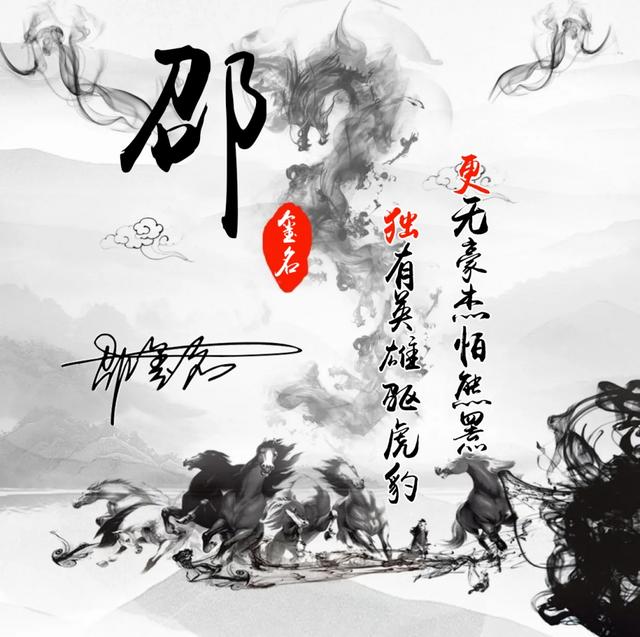 邵
金名
独有英雄驱虎豹
更无豪杰怕熊罴